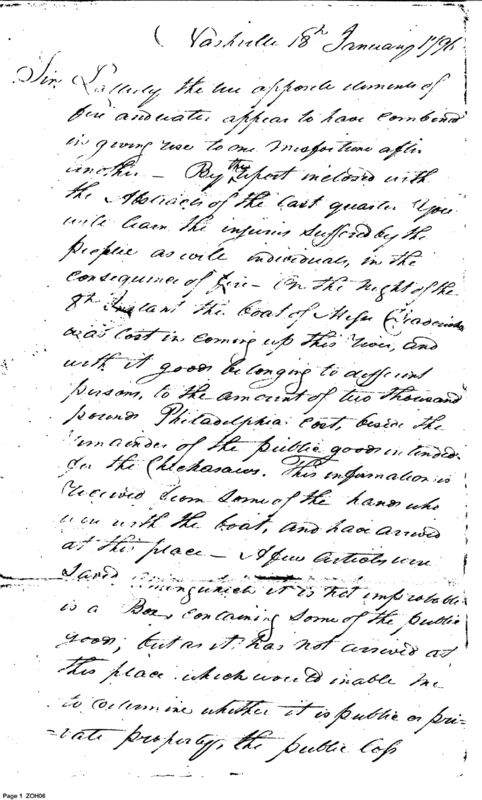 Nashville 18th January 1796
Sir, Latterly the two opposite elements of
fire and water appear to have combined
in giving rise to one misfortune after
another – By the report inclosed with
the Abstracts of the last quarter You
will learn the injuries suffered by the
people as well individuals, in the
consequence of fire – On the night of the
8th Instant the boat of Messrs
was lost in coming up this river, and
with it goods belonging to different
persons, to the amount of two thousand
pounds Philadelphia cost, beside the
remainder of the public goods intended
for the Chickasaws. This information is
received from some of the hands who
were with the boat, and have arrived
at this place – A few articles were
saved among which it is not improbable
is a Box, containing some of the public
goods, but as it has not arrived at
this place which would inable me
to determine whether it is public or pri-
=vate property, the public loss
Page 1 ZOH06